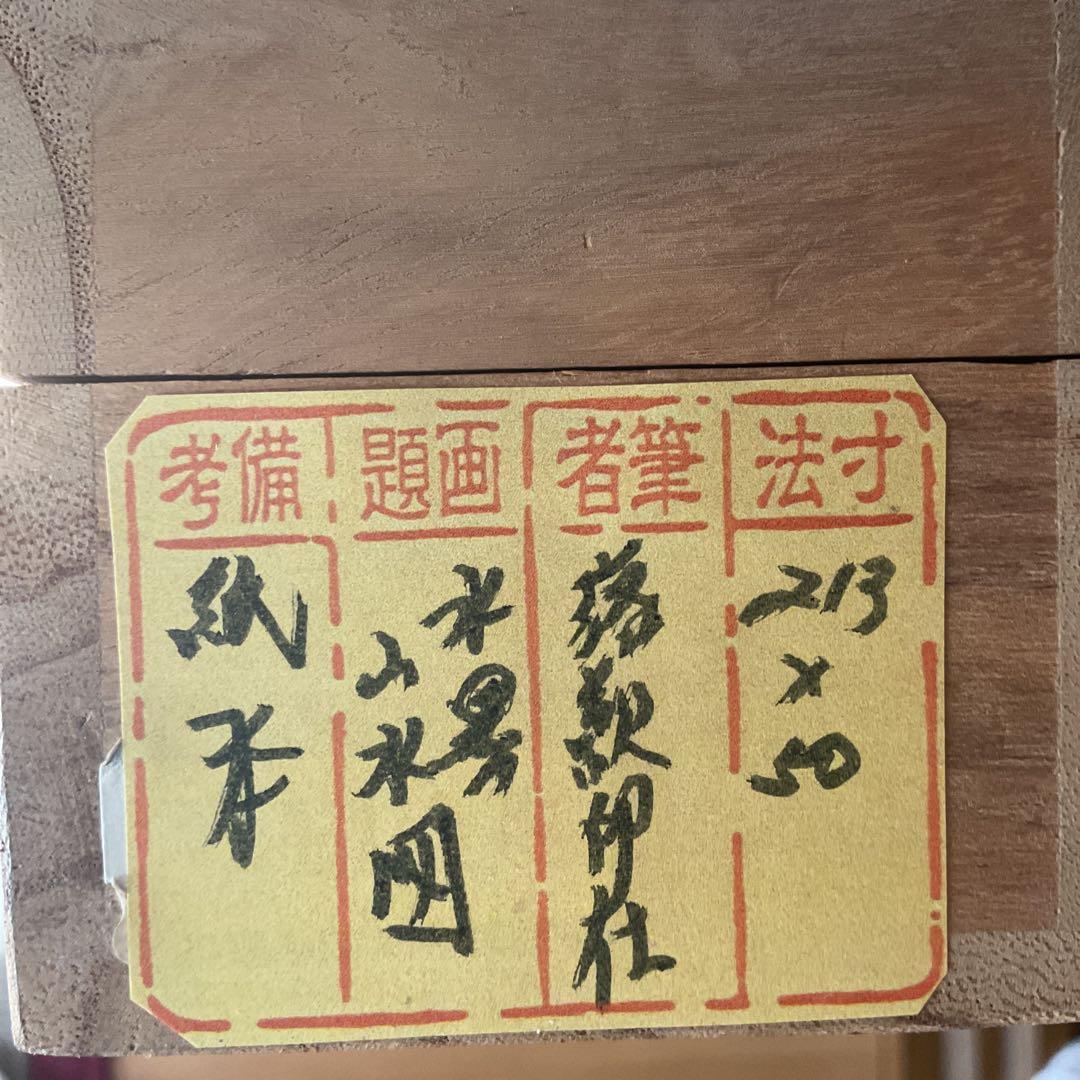 寸法
213
×
50
筆者
落款印在
画題
水墨
山水図
備考
紙本